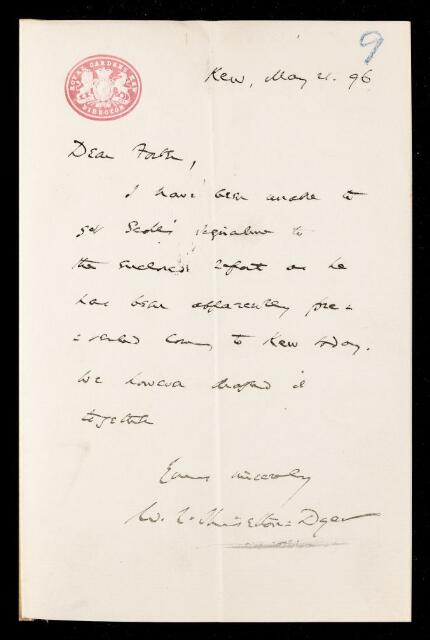 9
ROYAL GARDENS KEW
DIRECTOR
Kew, May 21. 96
Dear Foster,
I have been unable to
get Scott's signature to
the enclosed report as he
has been apparently pre=
=vented coming to Kew today.
We however drafted it
together
Yours sincerely
W. T. Thiselton=Dyer